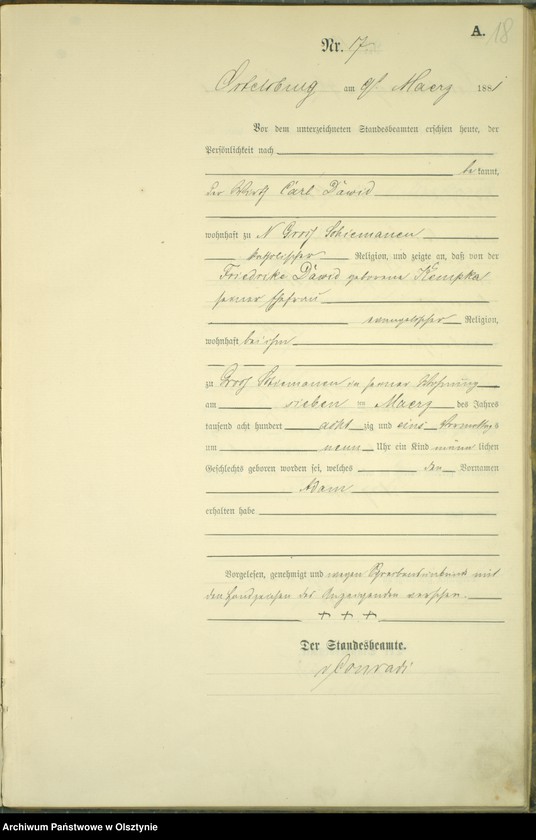 A. 18
Nr. 17
Ortelsburg am 9t Maerz 1881
Vor dem unterzeichneten Standesbeamten erschien heute, der
Persönlichkeit nach
bekannt,
der Wirth Carl Dawid
wohnhaft zu Groß Schiemanen
katholischer Religion, und zeigte an, daß von der
Friedricke Dawid geborene Kempka
seiner Ehefrau
evangelischer Religion,
wohnhaft bei ihm
zu Groß Schiemanen in seiner Wohnung
am sieben ten Maerz des Jahres
tausend acht hundert acht zig und eins Vormittags
um neun Uhr ein Kind männ lichen
Geschlechts geboren worden sei, welches den Vornamen
Adam
erhalten habe
Vorgelesen, genehmigt und wegen Schreibensunkunde mit
den Handzeichen des Anzeigenden versehen.
+ + +
Der Standesbeamte.
v Conradi
Archiwum Państwowe w Olsztynie